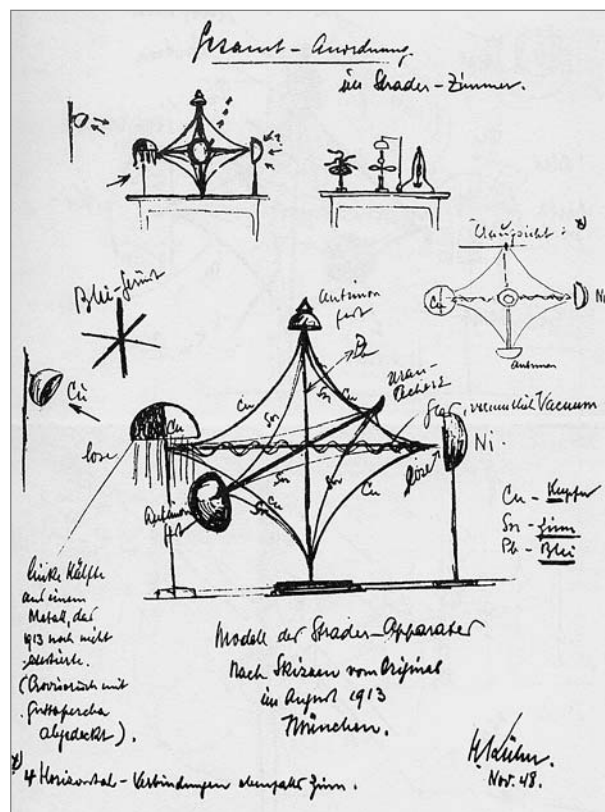 Gesamt-Anordnung
im Strader-Zimmer.
Cu
Ni
Antimon
Blei-
Antimon
fest
Pb
Cu
Cu
Sn
Sn
Uran-
Cu
Glas, Vacuum
lose
Cu
Ni.
lose
Sn
Sn
Cu
Cu
Sn
Antimon
fest
Cu - Kupfer
Sn - Zinn
Pb - Blei
linke Hälfte
aus einem
Metall, das
1913 noch nicht
existierte.
(Provisorisch mit
Guttapercha
abgedeckt).
Modell des Strader-Apparates
nach Skizzen vom Original
im August 1913
München.
H. Kühn.
Nov. 48.
4 Horizontal-Verbindungen ebenfalls Zinn.